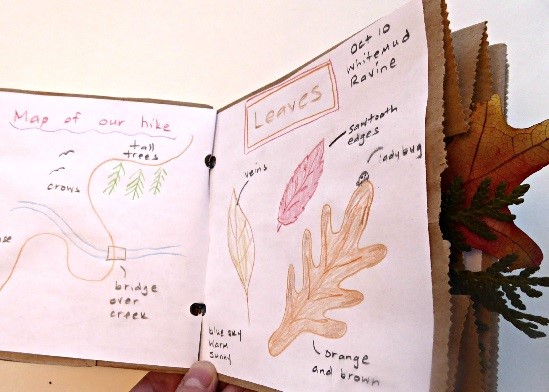 Map of our hike
tall
trees
crows
bridge
over
creek
Oct 10
Whitemud
Ravine
Leaves
sawtooth
edges
ladybug
veins
blue sky
warm
sunny
orange
and brown